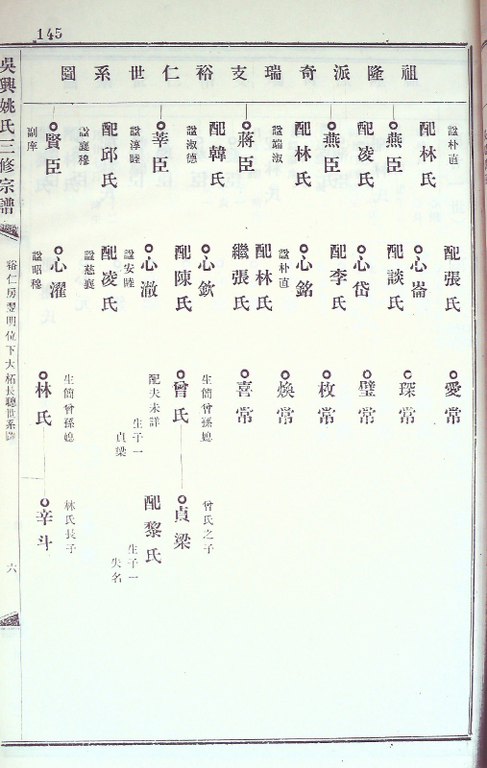 145
祖隆派奇瑞支裕仁世系圖
吳興姚氏三修宗譜
裕仁房翌明位下大柘長聽世系圖
六
配林氏
諡朴直
燕臣
配凌氏
燕臣
配林氏
諡端淑
蔣臣
配韓氏
諡淑德
莘臣
配邱氏
諡淳睦
諡襄穆
賢臣
副庠
配張氏
心崙
配談氏
心岱
配李氏
心銘
諡朴直
配林氏
繼張氏
心欽
配陳氏
心澈
諡安睦
配凌氏
諡慈襄
心濯
諡昭穆
愛常
琛常
璧常
枚常
煥常
喜常
生簡曾孫媳
曾氏
配夫未詳
生子一
貞梁
生簡曾孫媳
林氏
曾氏之子
貞梁
配黎氏
生子一
失名
林氏長子
辛斗